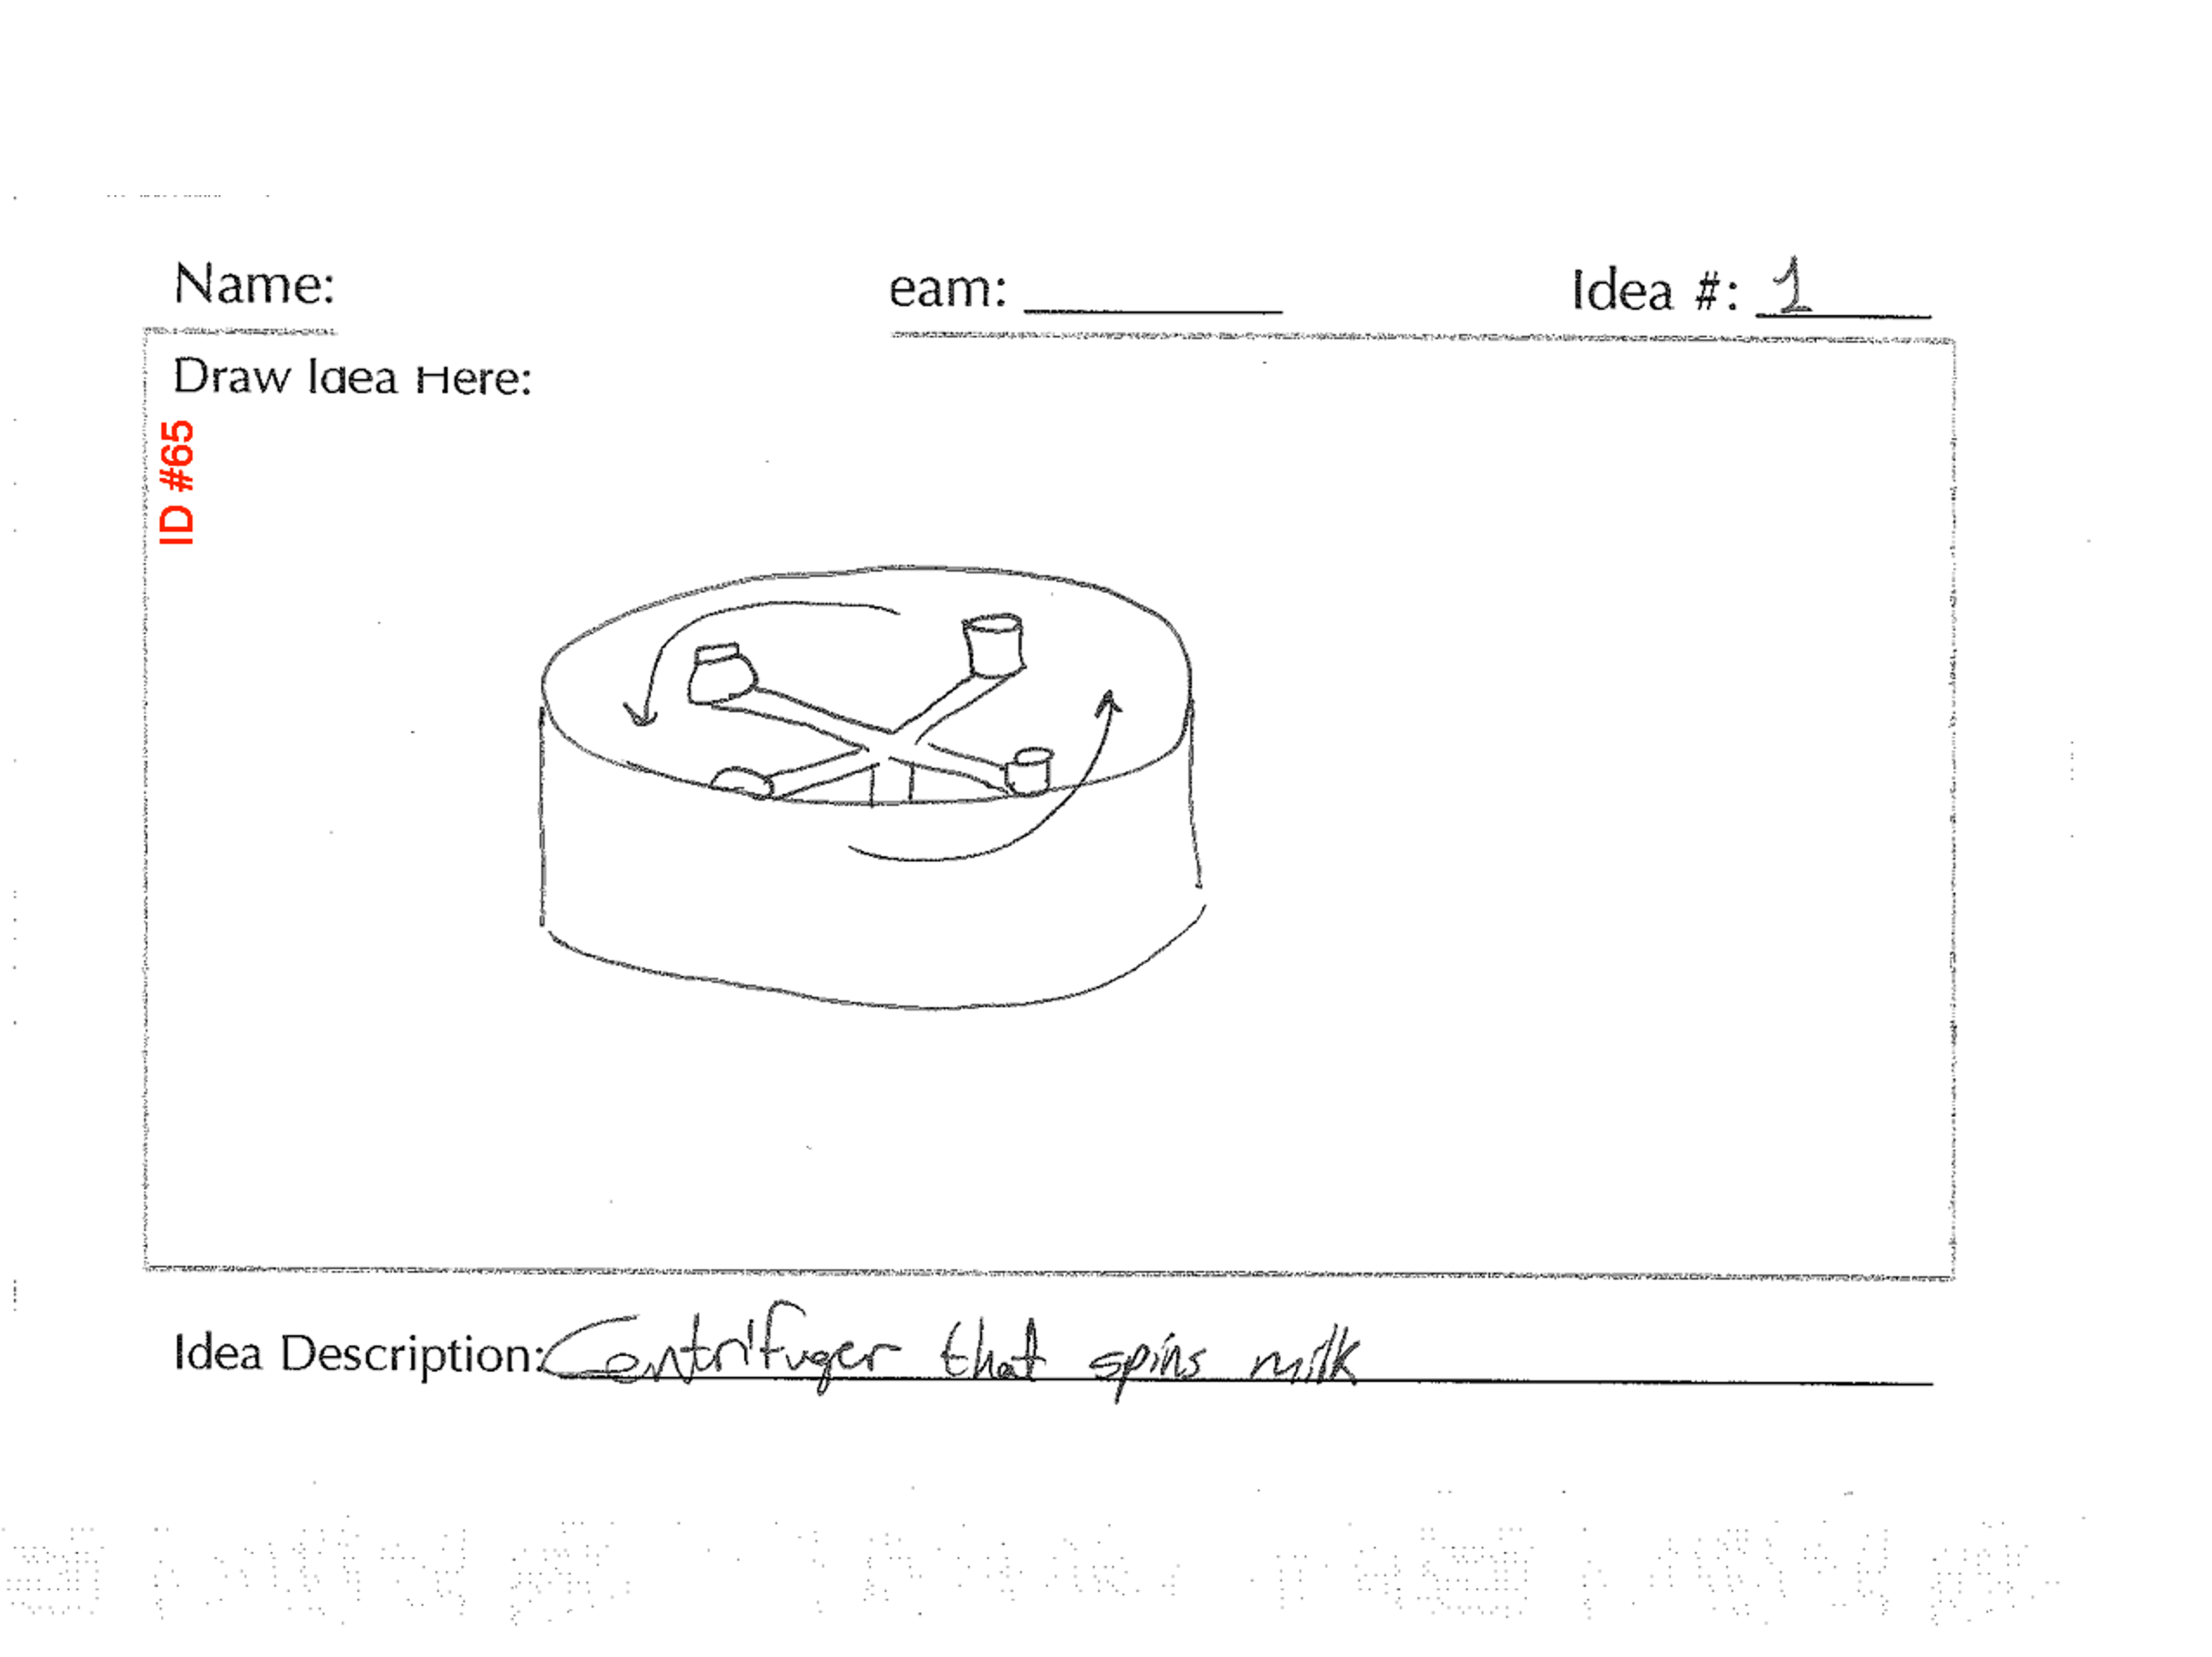 Name: eam: Idea #: 1
Draw Idea Here:
ID #65
Idea Description: Centrifuger that spins milk